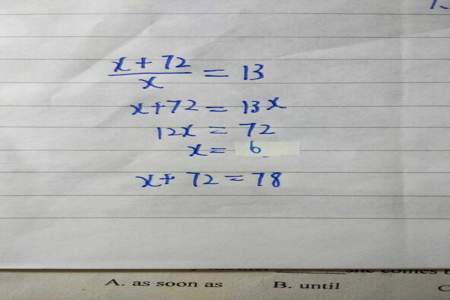 x + 72 / x = 13
x + 72 = 13x
12x = 72
x = 6
x + 72 = 78
A. as soon as B. until